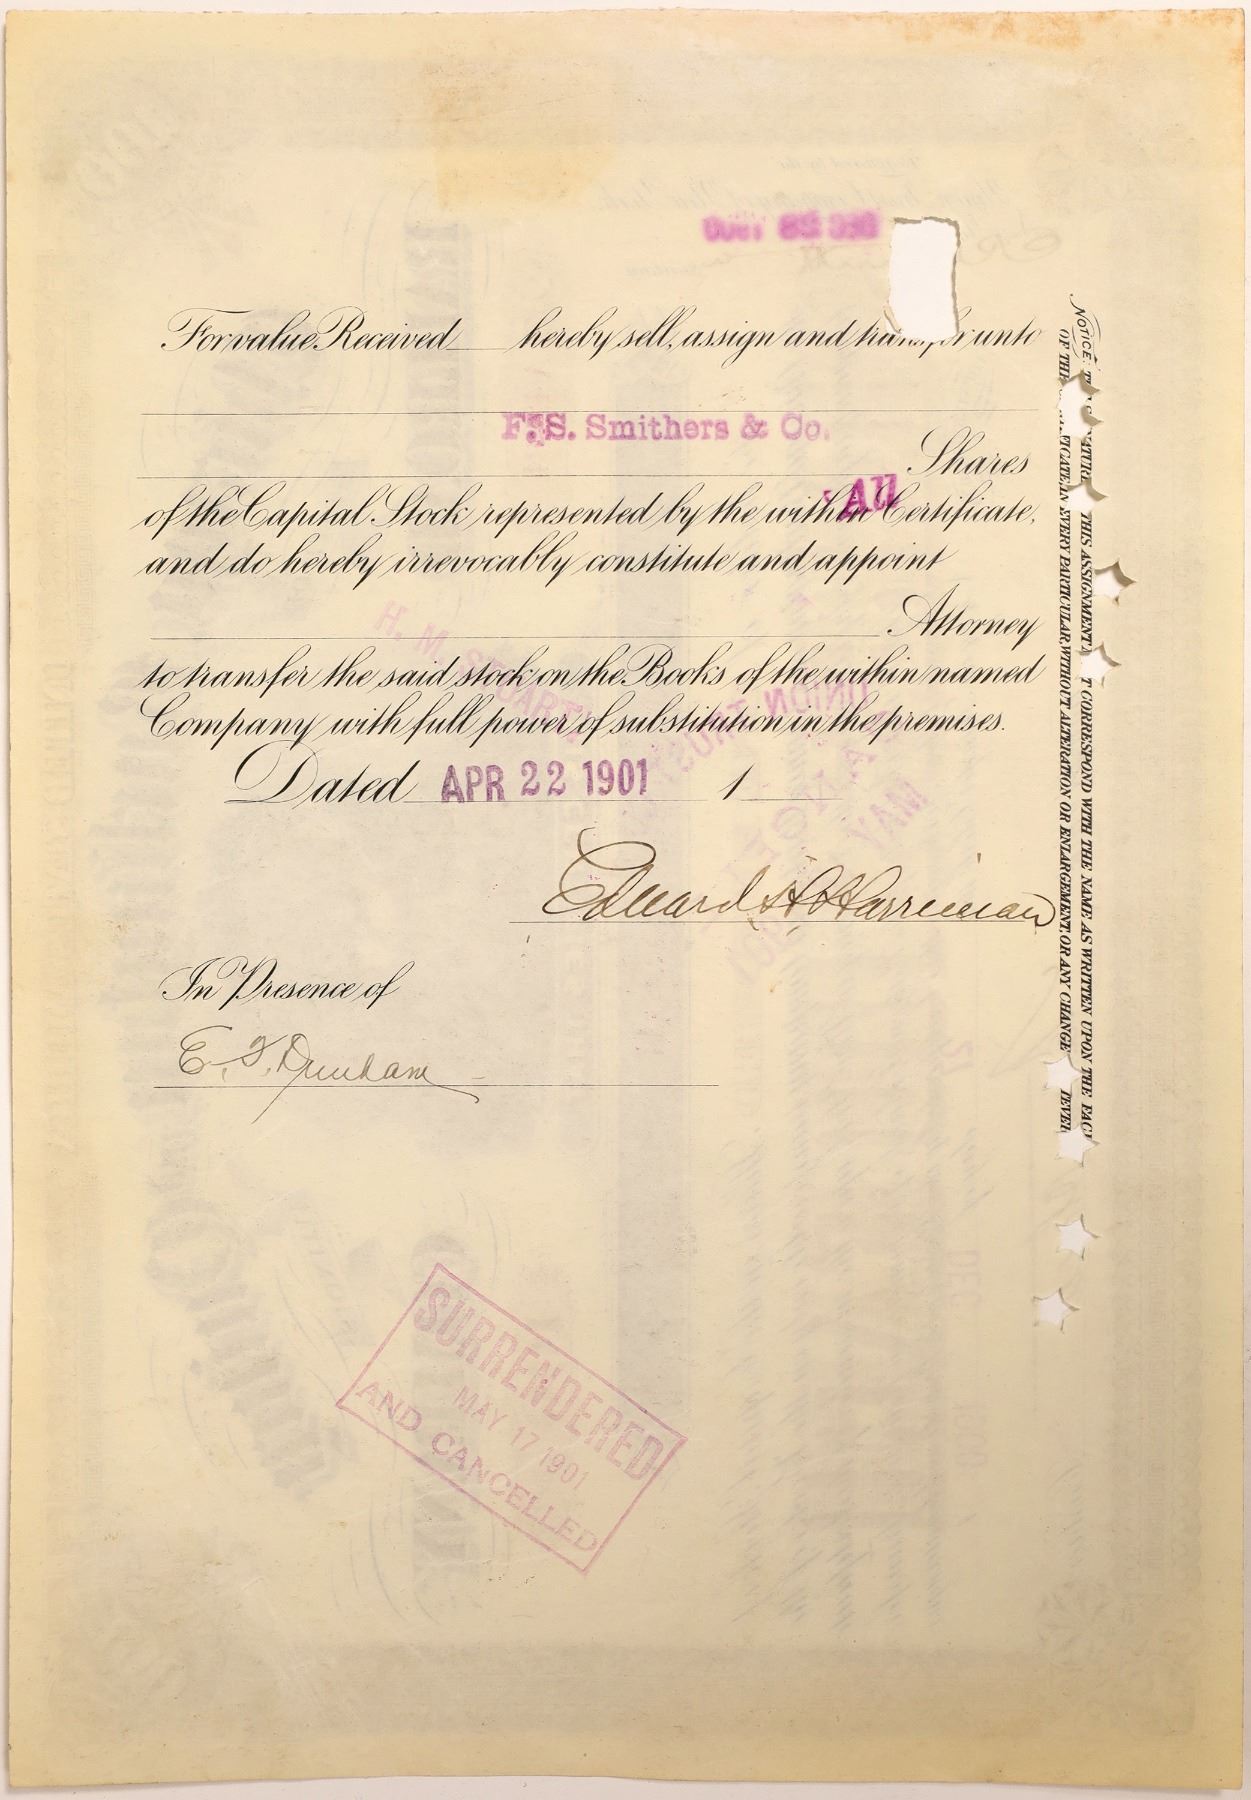 For value Received hereby sell, assign and transfer unto
F. S. Smithers & Co.
Shares
All
of the Capital Stock represented by the within Certificate,
and do hereby irrevocably constitute and appoint
Attorney
to transfer the said stock on the Books of the within named
Company with full power of substitution in the premises.
Dated APR 22 1901 1
Edward H Harriman
In Presence of
E. F. Dunham
SURRENDERED
MAY 17 1901
AND CANCELLED
NOTICE: THIS ASSIGNMENT CORRESPOND WITH THE NAME AS WRITTEN UPON THE FACE
OF THE IN EVERY PARTICULAR WITHOUT ALTERATION OR ENLARGEMENT, OR ANY CHANGE
H. M.
MAY
DEC